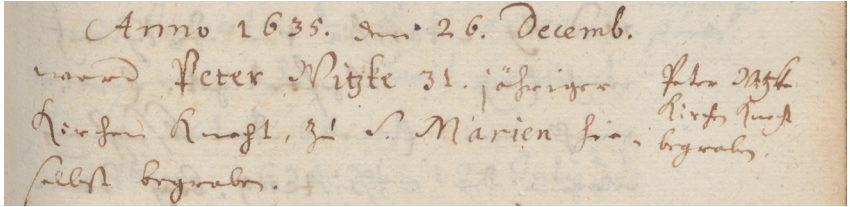 Anno 1635. den 26. Decemb.
ward Peter Witzke 31. jähriger
Kirchen Knecht, zu S. Marien hie-
selbst begraben.
Peter Witzke
Kirchen Knecht
begraben.